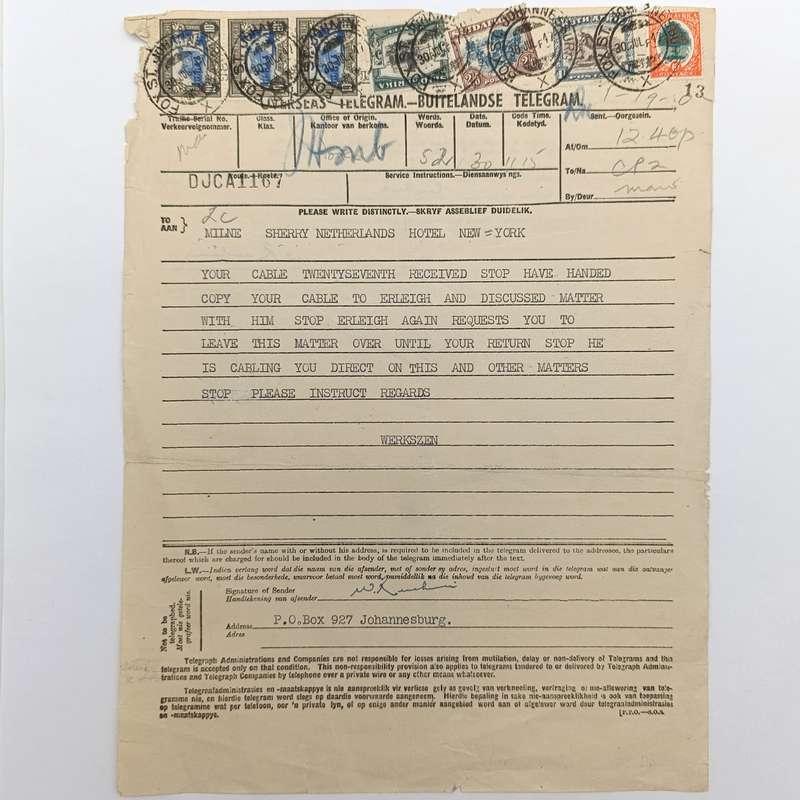 OVERSEAS TELEGRAM.—BUITELANDSE TELEGRAM.
13
Traffic Serial No.
Verkeervolgnommer.
Class.
Klas.
Office of Origin.
Kantoor van herkoms.
Words.
Woorde.
Date.
Datum.
Code Time.
Kodetyd.
Sent.—Oorgesein.
30
11 15
At/Om
12 40p
To/Na
By/Deur
DJCA1167
Route.—Roete.
Service Instructions.—Diensaanwysings.
PLEASE WRITE DISTINCTLY.—SKRYF ASSEBLIEF DUIDELIK.
TO
AAN
LC
MILNE SHERRY NETHERLANDS HOTEL NEW=YORK
YOUR CABLE TWENTYSEVENTH RECEIVED STOP HAVE HANDED
COPY YOUR CABLE TO ERLEIGH AND DISCUSSED MATTER
WITH HIM STOP ERLEIGH AGAIN REQUESTS YOU TO
LEAVE THIS MATTER OVER UNTIL YOUR RETURN STOP HE
IS CABLING YOU DIRECT ON THIS AND OTHER MATTERS
STOP PLEASE INSTRUCT REGARDS
WERKSZEN
N.B.—If the sender's name with or without his address, is required to be included in the telegram delivered to the addressee, the particulars
thereof which are charged for should be included in the body of the telegram immediately after the text.
L.W.—Indien verlang word dat die naam van die afsender, met of sonder sy adres, ingesluit moet word in die telegram wat aan die ontvanger
afgelewer word, moet die besonderhede, waarvoor betaal moet word, onmiddellik na die inhoud van die telegram bygevoeg word.
Not to be
telegraphed.
Moet nie getele-
grafeer word nie.
Signature of Sender
Handtekening van afsender
Address
Adres
P.O.Box 927 Johannesburg.
Telegraph Administrations and Companies are not responsible for losses arising from mutilation, delay or non-delivery of Telegrams and this
telegram is accepted only on that condition. This non-responsibility provision also applies to telegrams tendered to or delivered by Telegraph Adminis-
trations and Telegraph Companies by telephone over a private wire or any other means whatsoever.
Telegraafadministrasies en -maatskappye is nie aanspreeklik vir verliese gely as gevolg van verknoeiing, vertraging of nie-aflewering van tele-
gramme nie, en hierdie telegram word slegs op daardie voorwaarde aangeneem. Hierdie bepaling in sake nie-aanspreeklikheid is ook van toepassing
op telegramme wat per telefoon, oor 'n private lyn, of op enige ander manier aangebied word aan of afgelewer word deur telegraafadministrasies
en -maatskappye.